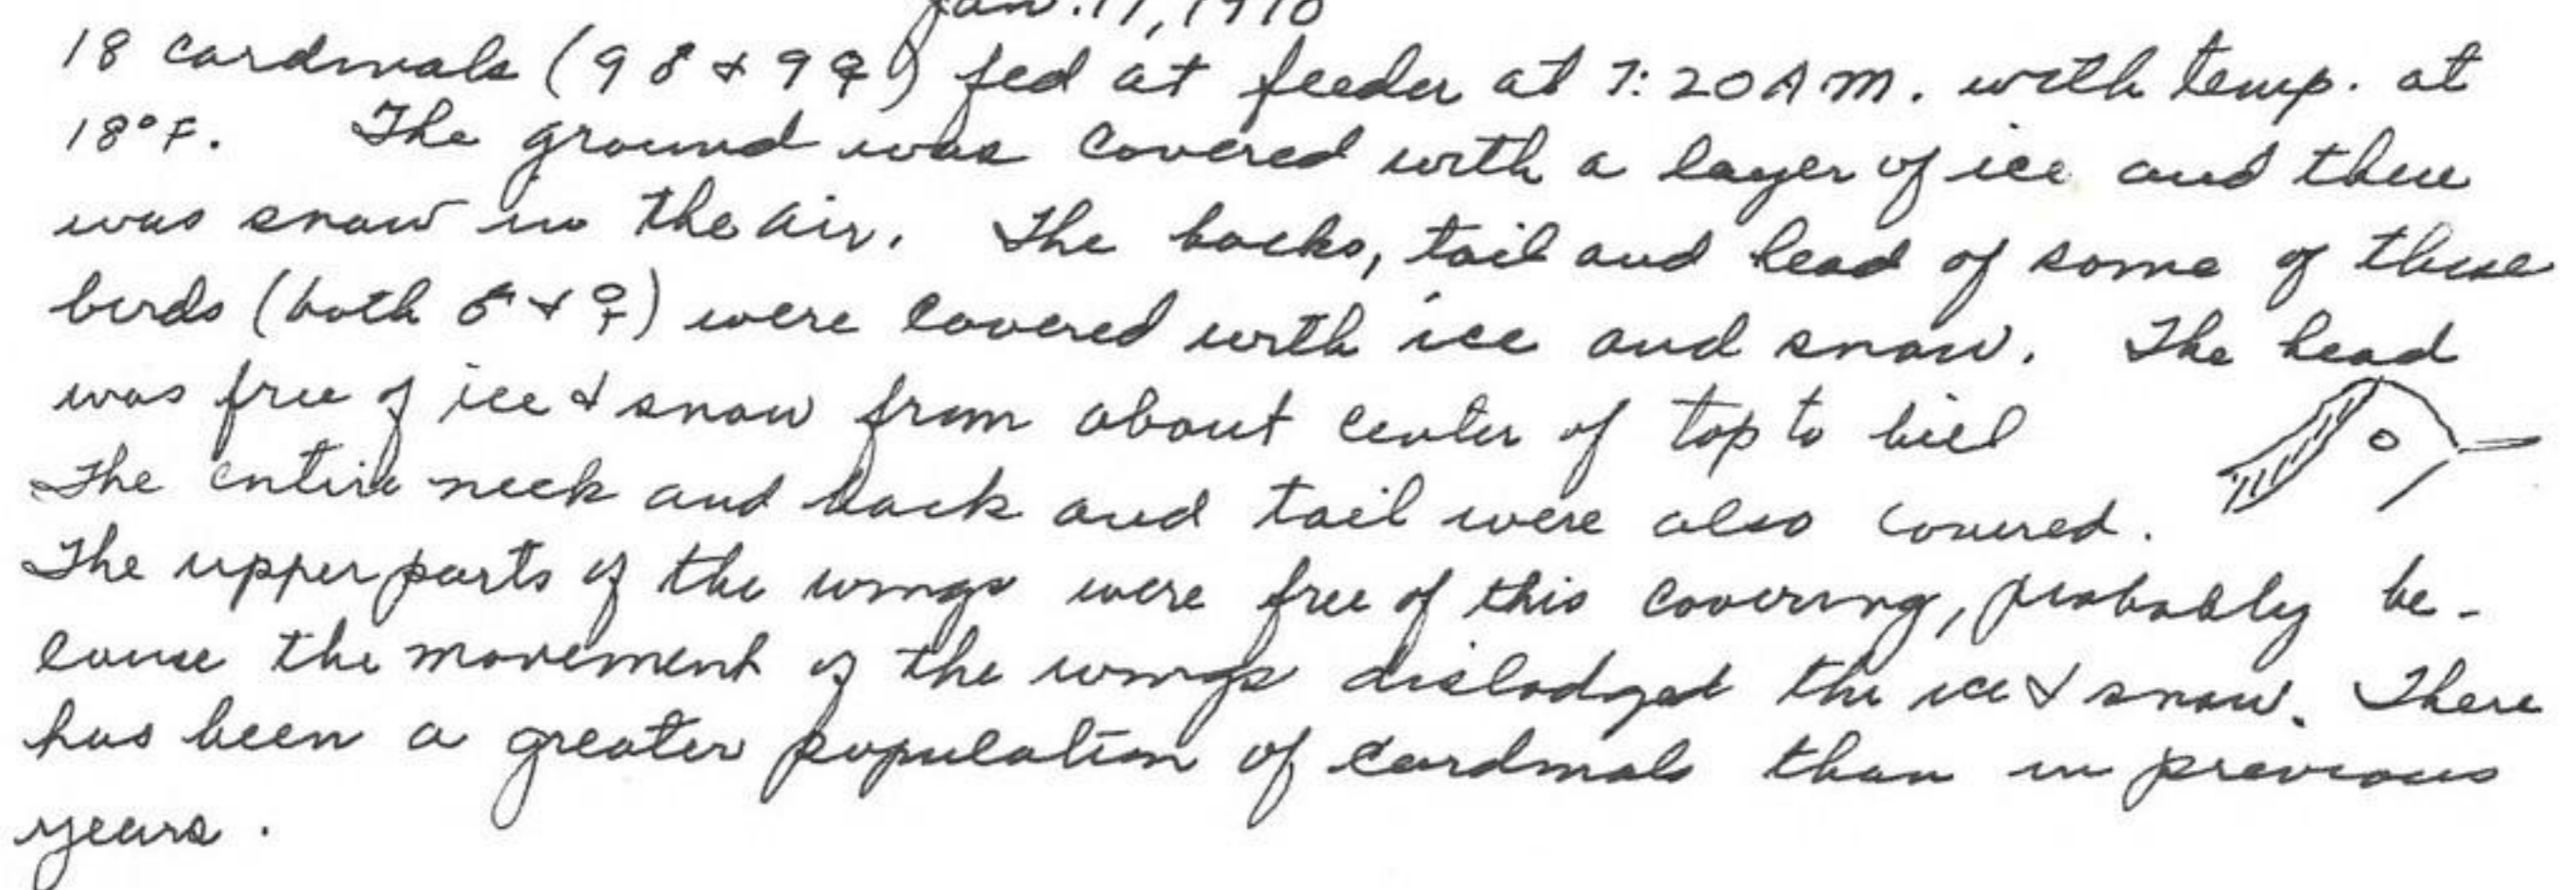 Jan. 17, 1970
18 cardinals (9 ♂ & 9 ♀) fed at feeder at 7:20 AM. with temp. at
18°F. The ground was covered with a layer of ice and there
was snow in the air. The backs, tail and head of some of these
birds (both ♂ & ♀) were covered with ice and snow. The head
was free of ice & snow from about center of top to bill
The entire neck and back and tail were also covered.
The upper parts of the wings were free of this covering, probably be-
cause the movement of the wings dislodged the ice & snow. There
has been a greater population of cardinals than in previous
years.